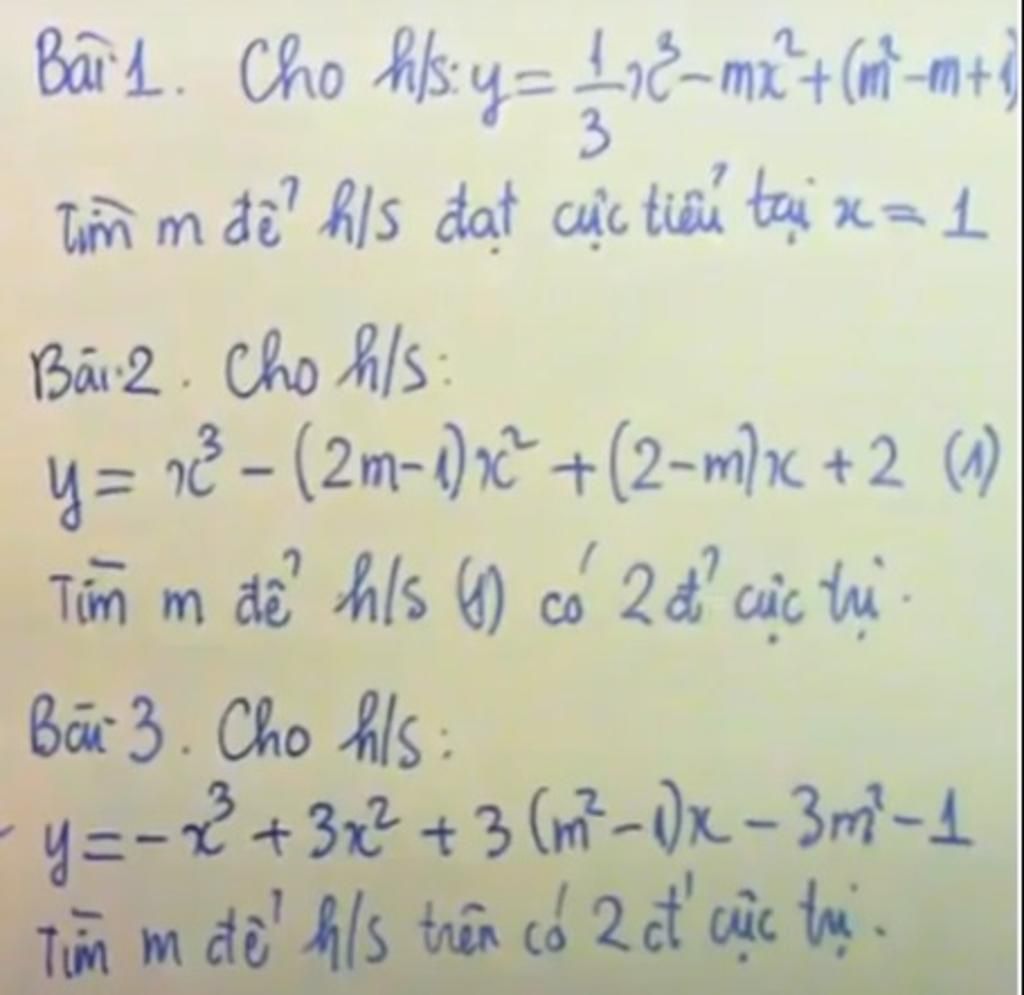 Bài 1. Cho h/s: y = 1/3 x³ - mx² + (m² - m + 1)
Tìm m để h/s đạt cực tiểu tại x = 1
Bài 2. Cho h/s:
y = x³ - (2m-1)x² + (2-m)x + 2 (1)
Tìm m để h/s (1) có 2 đ' cực trị.
Bài 3. Cho h/s:
y = -x³ + 3x² + 3(m²-1)x - 3m² - 1
Tìm m để h/s trên có 2 đ' cực trị.